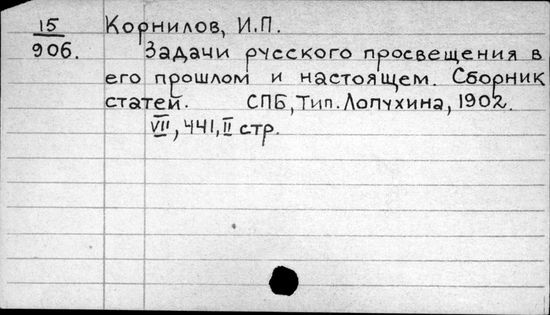 15 Корнилов, И.П.
906. Задачи русского просвещения в
его прошлом и настоящем. Сборник
статей. СПБ, Тип. Лопухина, 1902.
VII, 441, II стр.